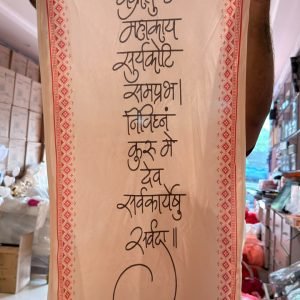 महाकाय
सुर्यकोटि
समप्रभ।
निर्विघ्नं
कुरू मे
देव
सर्वकार्येषु
सर्वदा॥